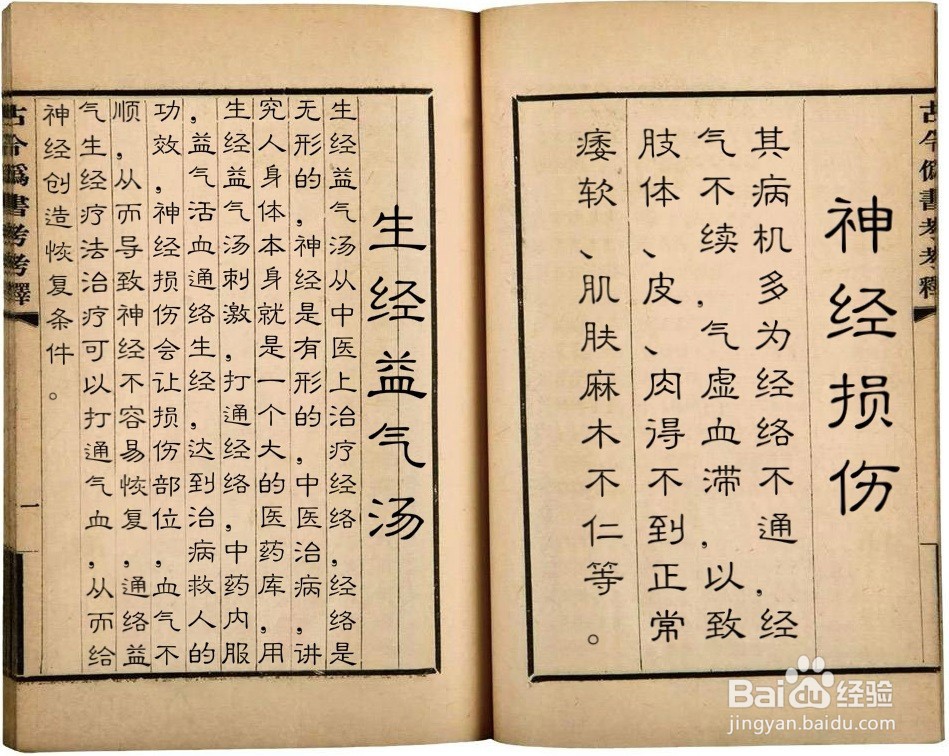 古今僞書考考釋
神经损伤
其病机多为经络不通,经
气不续,气虚血滞,以致
肢体、皮、肉得不到正常
痿软、肌肤麻木不仁等。
生经益气汤
生经益气汤从中医上治疗经络,经络是
无形的,神经是有形的,中医治病,讲
究人身体本身就是一个大的医药库,用
生经益气汤刺激,打通经络,中药内服
,益气活血通络生经,达到治病救人的
功效,神经损伤会让损伤部位,血气不
顺,从而导致神经不容易恢复,通络益
气生经疗法治疗可以打通气血,从而给
神经创造恢复条件。
古今僞書考考釋
一
Bai du 经验
jingyan.baidu.com